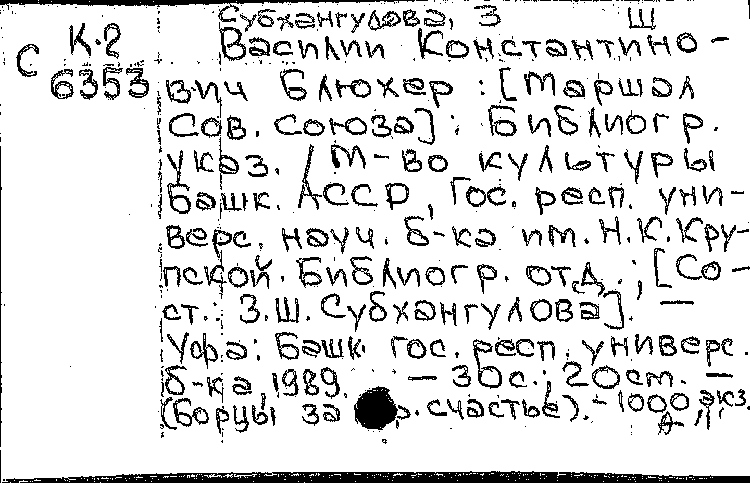 Субхангулова, З Ш
К-2 Василий Константино-
С
6353 вич Блюхер : [Маршал
Сов. Союза] : Библиогр.
указ. / М-во культуры
Башк. АССР, Гос. респ. уни-
верс. науч. б-ка им. Н.К.Кру-
пской. Библиогр. отд. ; [Со-
ст.: З.Ш.Субхангулова]. —
Уфа: Башк. гос. респ. универс.
б-ка, 1989. — 30с.; 20см. —
(Борцы за счастье). - 1000 экз.